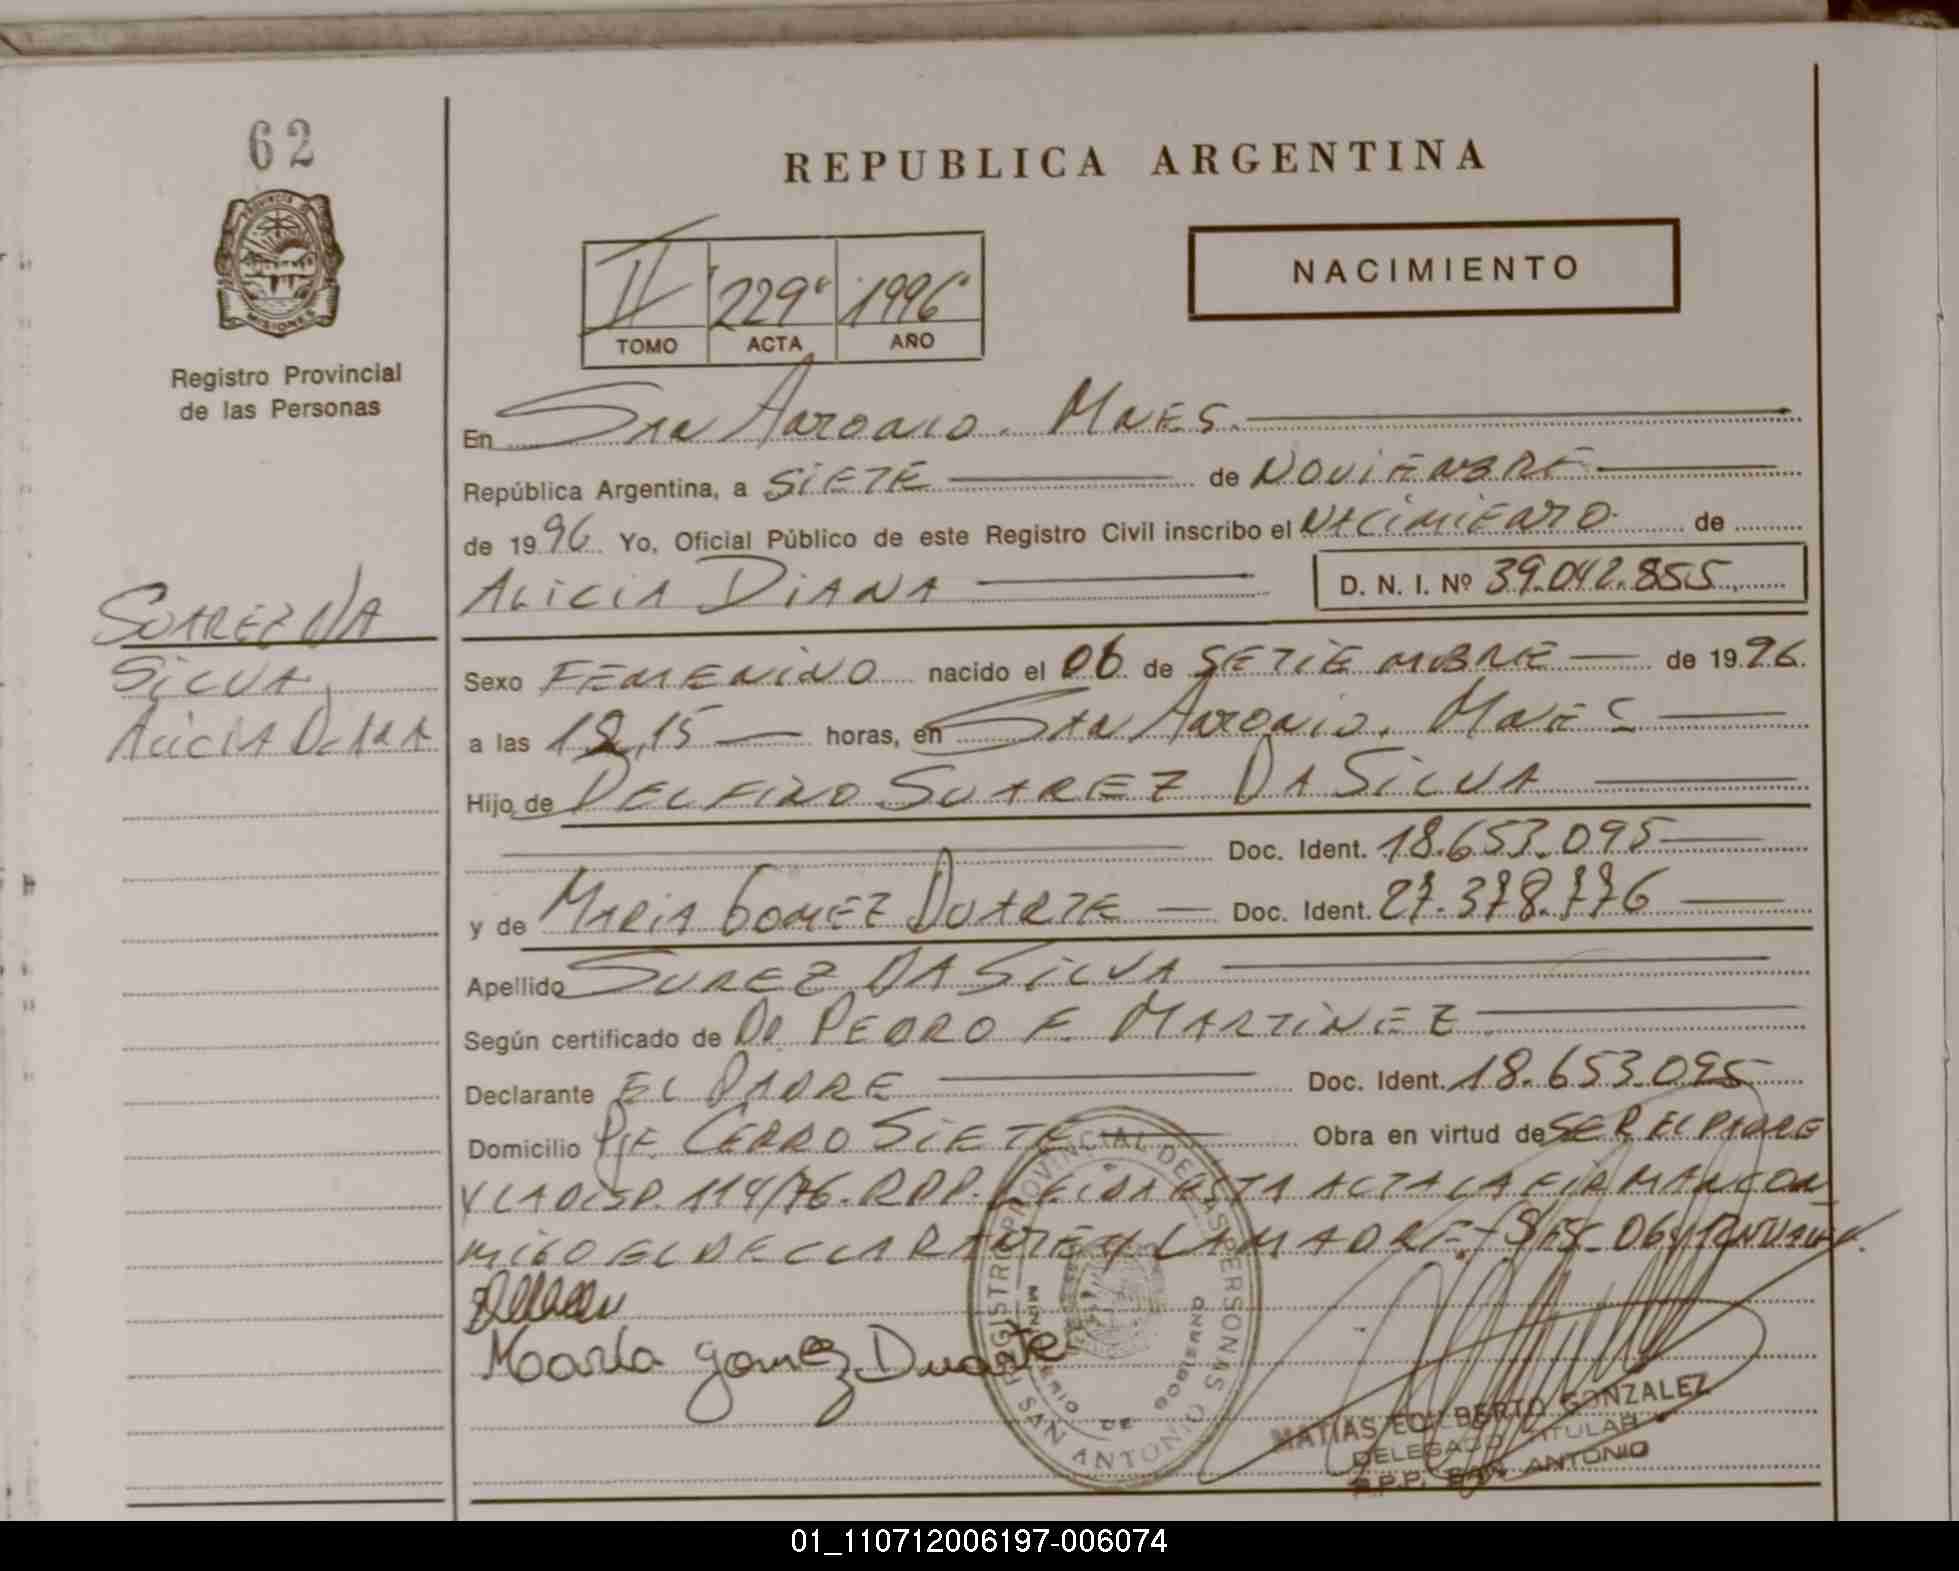 62
REPUBLICA ARGENTINA
PROVINCIA DE
MISIONES
Registro Provincial
de las Personas
II 229º 1996
TOMO ACTA AÑO
NACIMIENTO
En San Antonio. Mnes.
República Argentina, a SIETE de NOVIEMBRE
de 1996 Yo, Oficial Público de este Registro Civil inscribo el NACIMIENTO de
ALICIA DIANA D. N. I. Nº 39.042.855
SUAREZ DA
SILVA,
ALICIA DIANA
Sexo FEMENINO nacido el 06 de SETIEMBRE de 1996.
a las 12,15 horas, en San Antonio. Mnes
Hijo de DELFINO SUAREZ DA SILVA
Doc. Ident. 18.653.095
y de MARIA GOMEZ DUARTE Doc. Ident. 27.378.776
Apellido SUREZ DA SILVA
Según certificado de Dr. PEDRO F. MARTINEZ
Declarante EL PADRE Doc. Ident. 18.653.095
Domicilio Pje. CERRO SIETE Obra en virtud de SER EL PADRE
Y LA DISP. 114/76. RPP. LEIDA ESTA ACTA LA FIRMAN CON
MIGO EL DECLARANTE Y LA MADRE
Maria gomez Duarte
REGISTRO PROVINCIAL DE LAS PERSONAS
MINISTERIO DE GOBIERNO
SAN ANTONIO
MATIAS EDILBERTO GONZALEZ
DELEGADO TITULAR
R.P.P. SAN ANTONIO
01_110712006197-006074